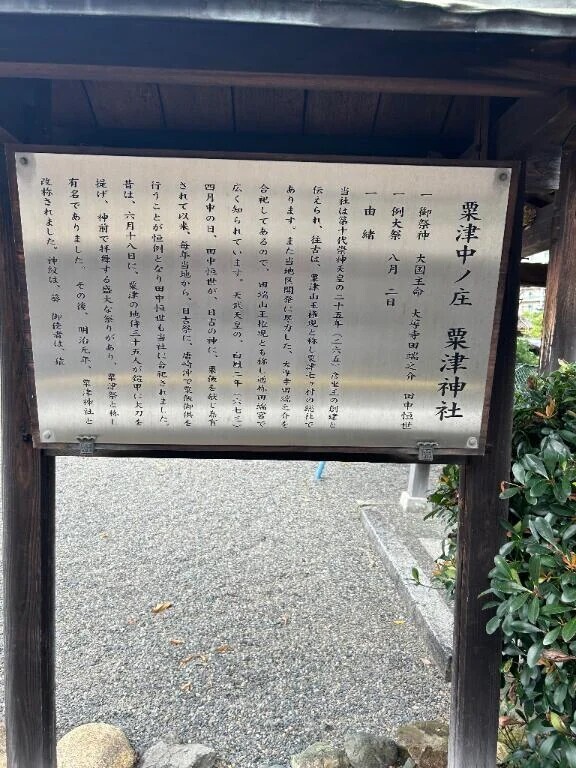 粟津中ノ庄 粟津神社
一 御祭神 大国主命 大塚寺田端之介 田中恒世
一 例大祭 八月 二日
一 由緒
当社は第十代崇神天皇の二十五年(二六五)彦坐王の創建と
伝えられ、往古は、粟津山王権現と称し粟津七ヶ村の総社で
あります。また当地区開祭に尽力した、大塚寺田端之介を
合祀してあるので、田端山王権現とも称し通称田端宮で
広く知られています。天武天皇の、白鳳二年(六七三)
四月中の日、田中恒世が、日吉の神に、粟飯を献じ奉斎
されて以来、毎年当地から、日吉祭に、唐崎沖で粟飯御供を
行うことが恒例となり田中恒世も当社に合祀されました。
昔は、六月十八日に、粟津の地侍三十五人が鎧甲に太刀を
提げ、神前で拝舞する盛大な祭りがあり、粟津祭と称し
有名でありました。その後、明治元年、粟津神社と
改称されました。神紋は、葵 御使者は、猿